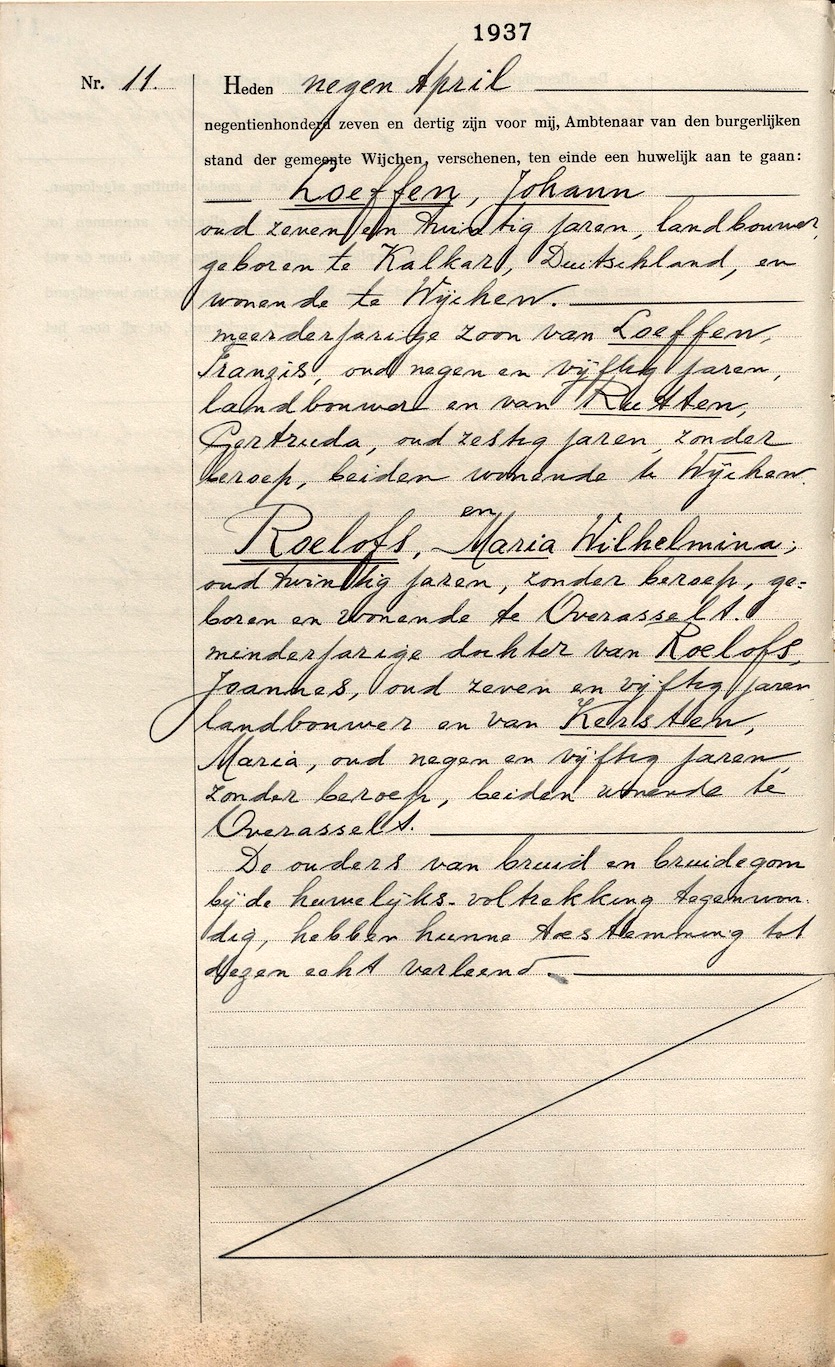 1937
Nr. 11.
Heden negen April
negentienhonderd zeven en dertig zijn voor mij, Ambtenaar van den burgerlijken
stand der gemeente Wijchen, verschenen, ten einde een huwelijk aan te gaan:
Loeffen, Johann
oud zeven en twintig jaren, landbouwer,
geboren te Kalkar, Duitschland, en
wonende te Wijchen.
meerderjarige zoon van Loeffen,
Franzis, oud negen en vijftig jaren,
landbouwer en van Rutten,
Gertruda, oud zestig jaren, zonder
beroep, beiden wonende te Wijchen.
en
Roelofs, Maria Wilhelmina,
oud twintig jaren, zonder beroep, ge-
boren en wonende te Overasselt.
minderjarige dochter van Roelofs,
Joannes, oud zeven en vijftig jaren,
landbouwer en van Kersten,
Maria, oud negen en vijftig jaren,
zonder beroep, beiden wonende te
Overasselt.
De ouders van bruid en bruidegom
bij de huwelijks-voltrekking tegenwoor-
dig, hebben hunne toestemming tot
dezen echt verleend.